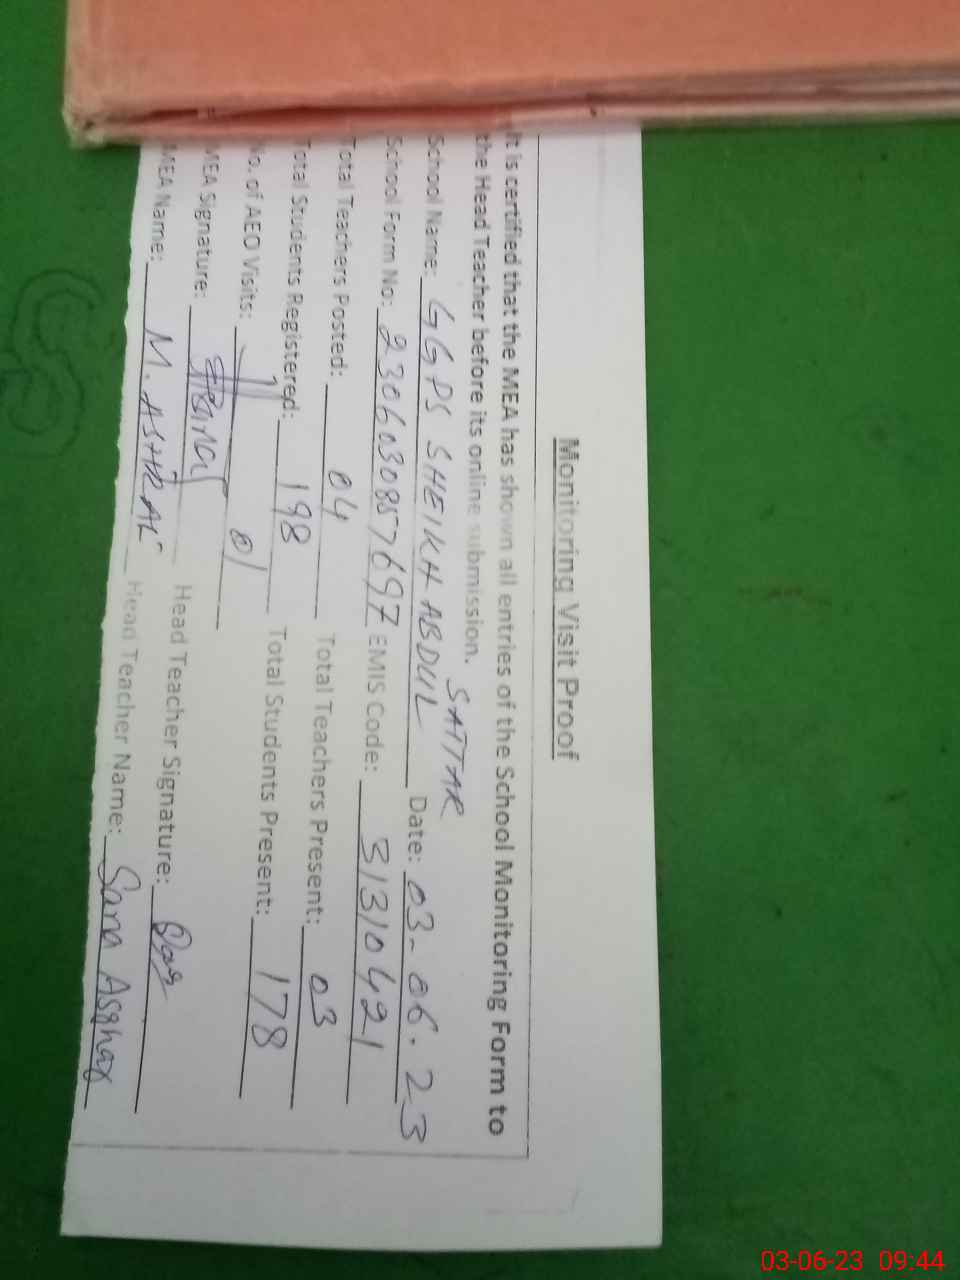 Monitoring Visit Proof
It is certified that the MEA has shown all entries of the School Monitoring Form to
the Head Teacher before its online submission.
School Name: GGPS SHEIKH ABDUL SATTAR Date: 03-06.23
School Form No: 2306030857697 EMIS Code: 31310421
Total Teachers Posted: 04 Total Teachers Present: 03
Total Students Registered: 198 Total Students Present: 178
No. of AEO Visits: 01
MEA Signature: Head Teacher Signature:
MEA Name: M. ASHRAF Head Teacher Name: Sara Asghar
03-06-23 09:44